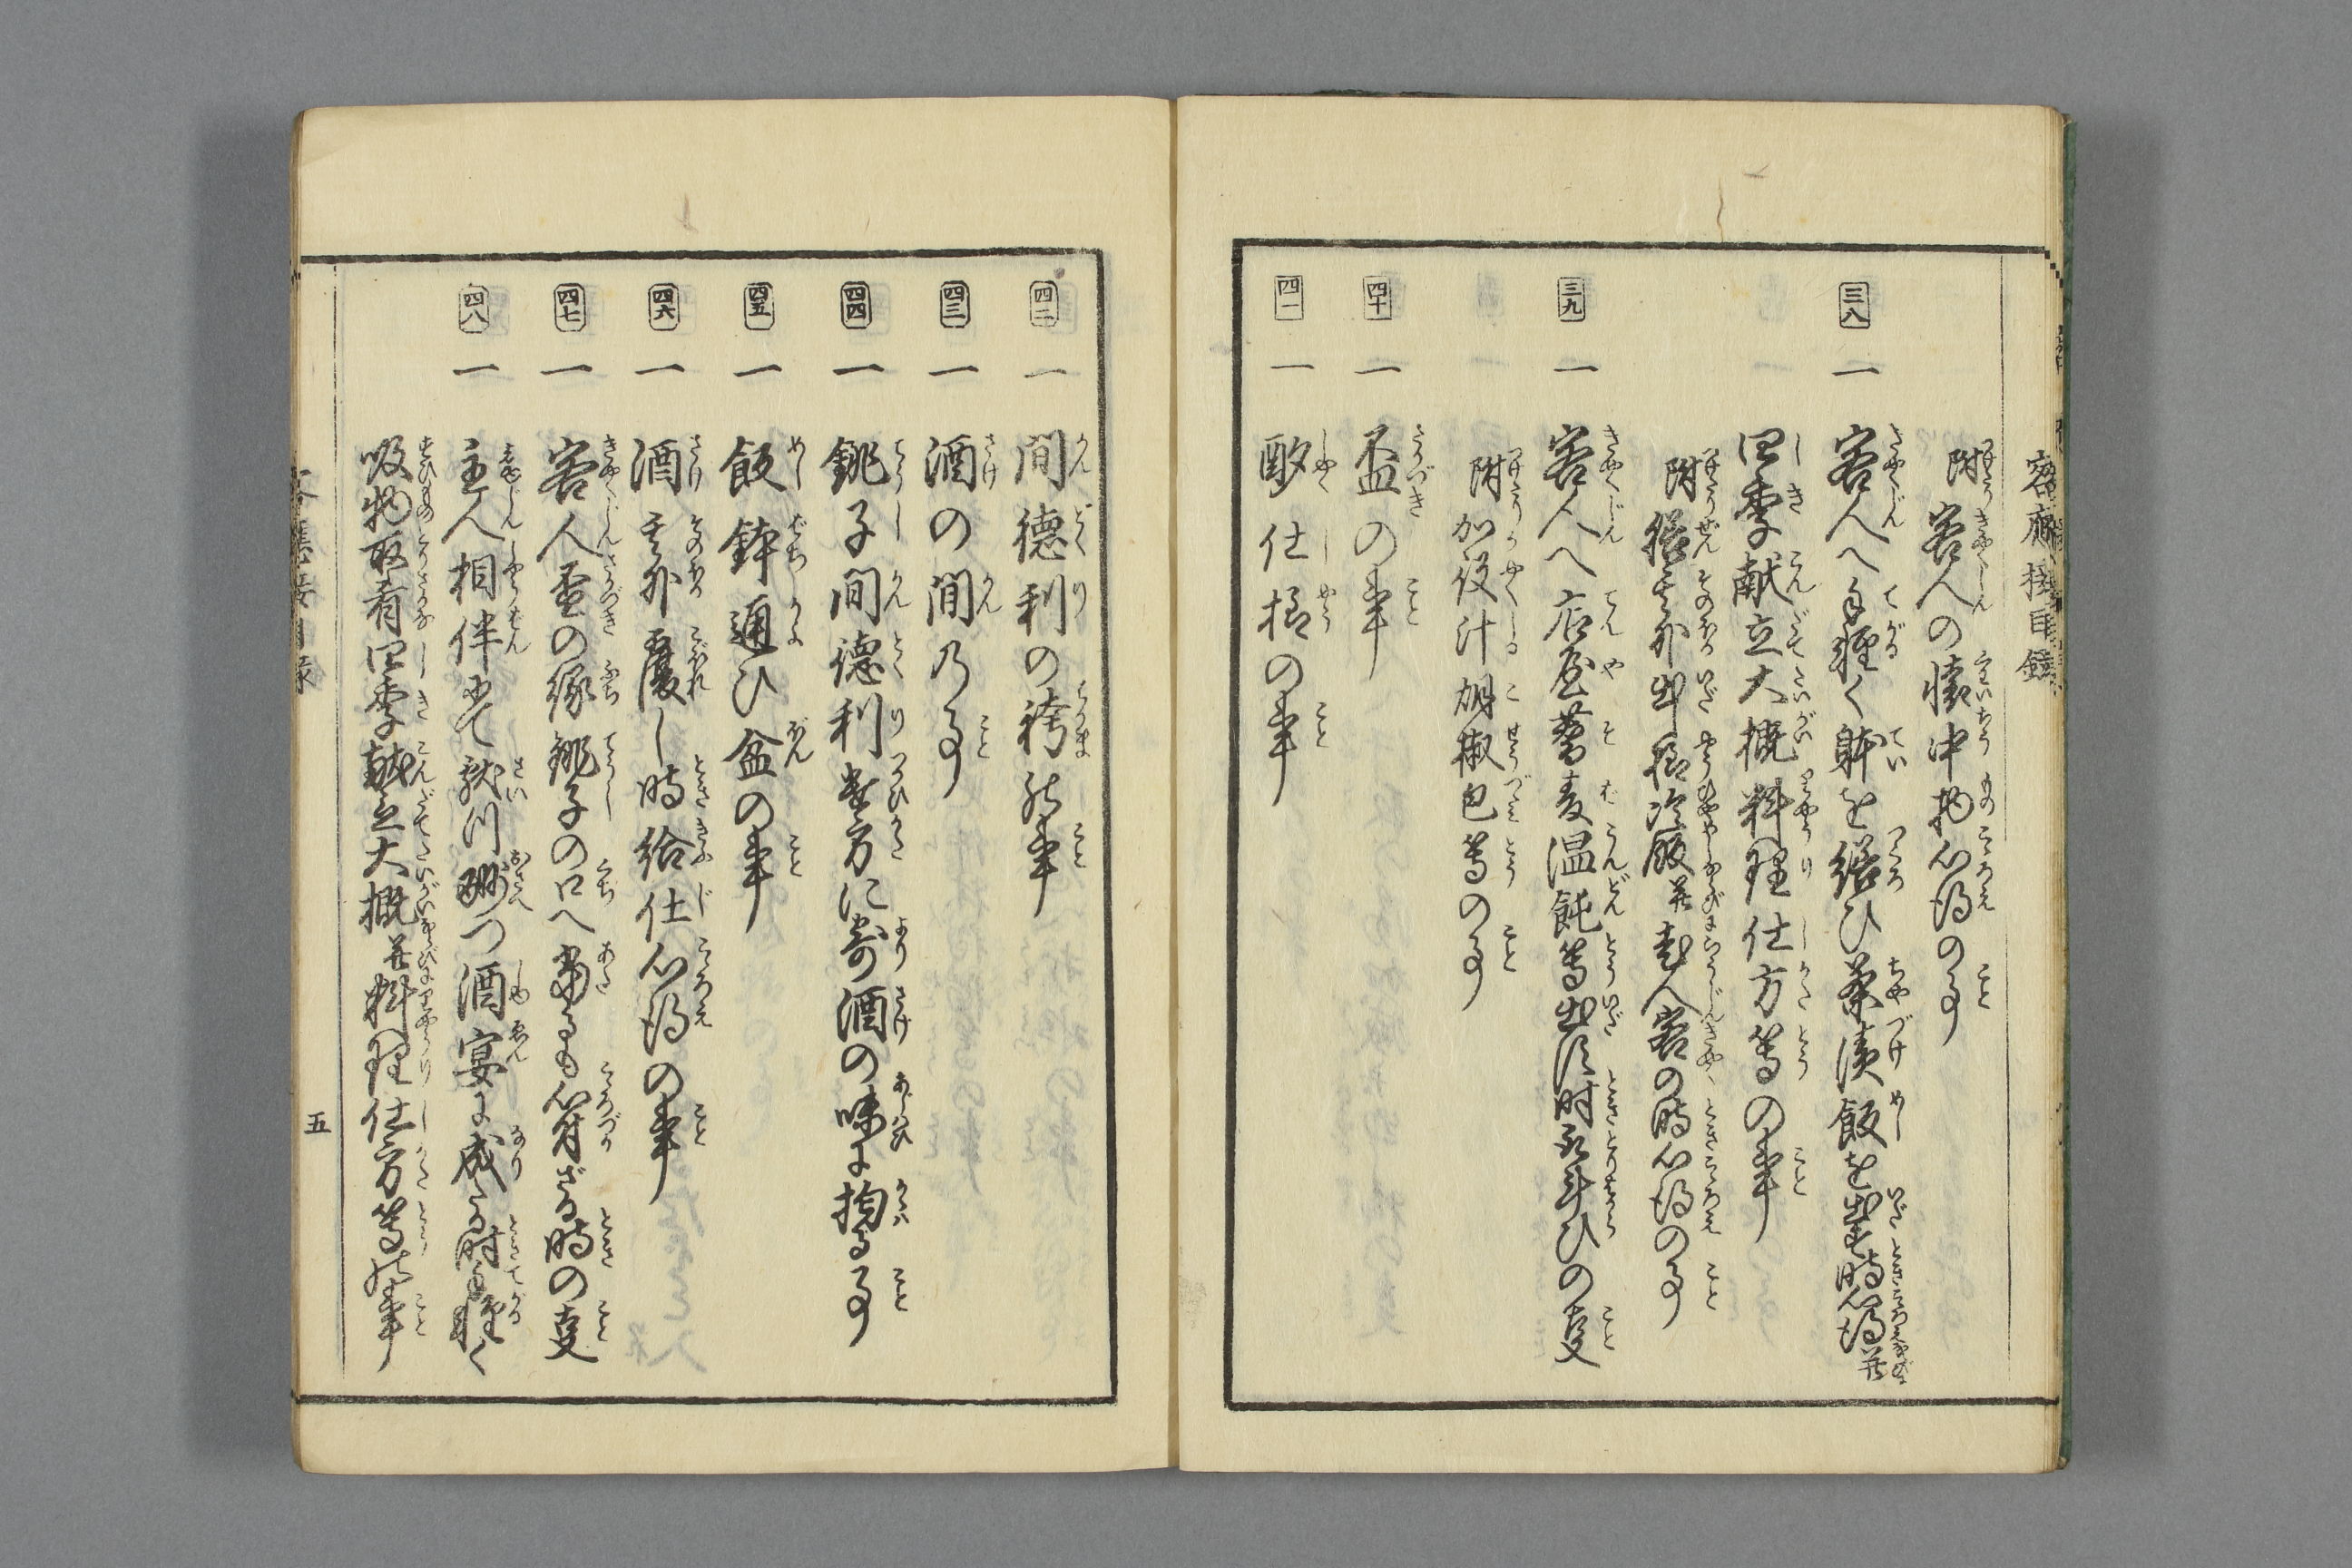 附客人の懐中物心得の事
三八 一 客人へ手軽く躰を繕ひ茶漬飯を出す時心得并
四季献立大概料理仕方等の事
附膳其外出し様冷飯并老人客の時心得の事
三九 一 客人へ店屋蕎麦温飩等出す時取斗ひの叓
附加役汁胡椒包等の事
四十 一 盃の事
四一 一 酌仕様の事
四二 一 間徳利の袴の事
四三 一 酒の間乃事
四四 一 銚子間徳利遣方に寄酒の味に拘る事
四五 一 飯鉢通ひ盆の事
四六 一 酒其外覆し時給仕心得の事
四七 一 客人盃の縁銚子の口へ当るも心付ざる時の叓
四八 一 主人相伴にて献つ酬つ酒宴に成たる時手軽く
吸物取肴四季献立大概并料理仕方等の事
五